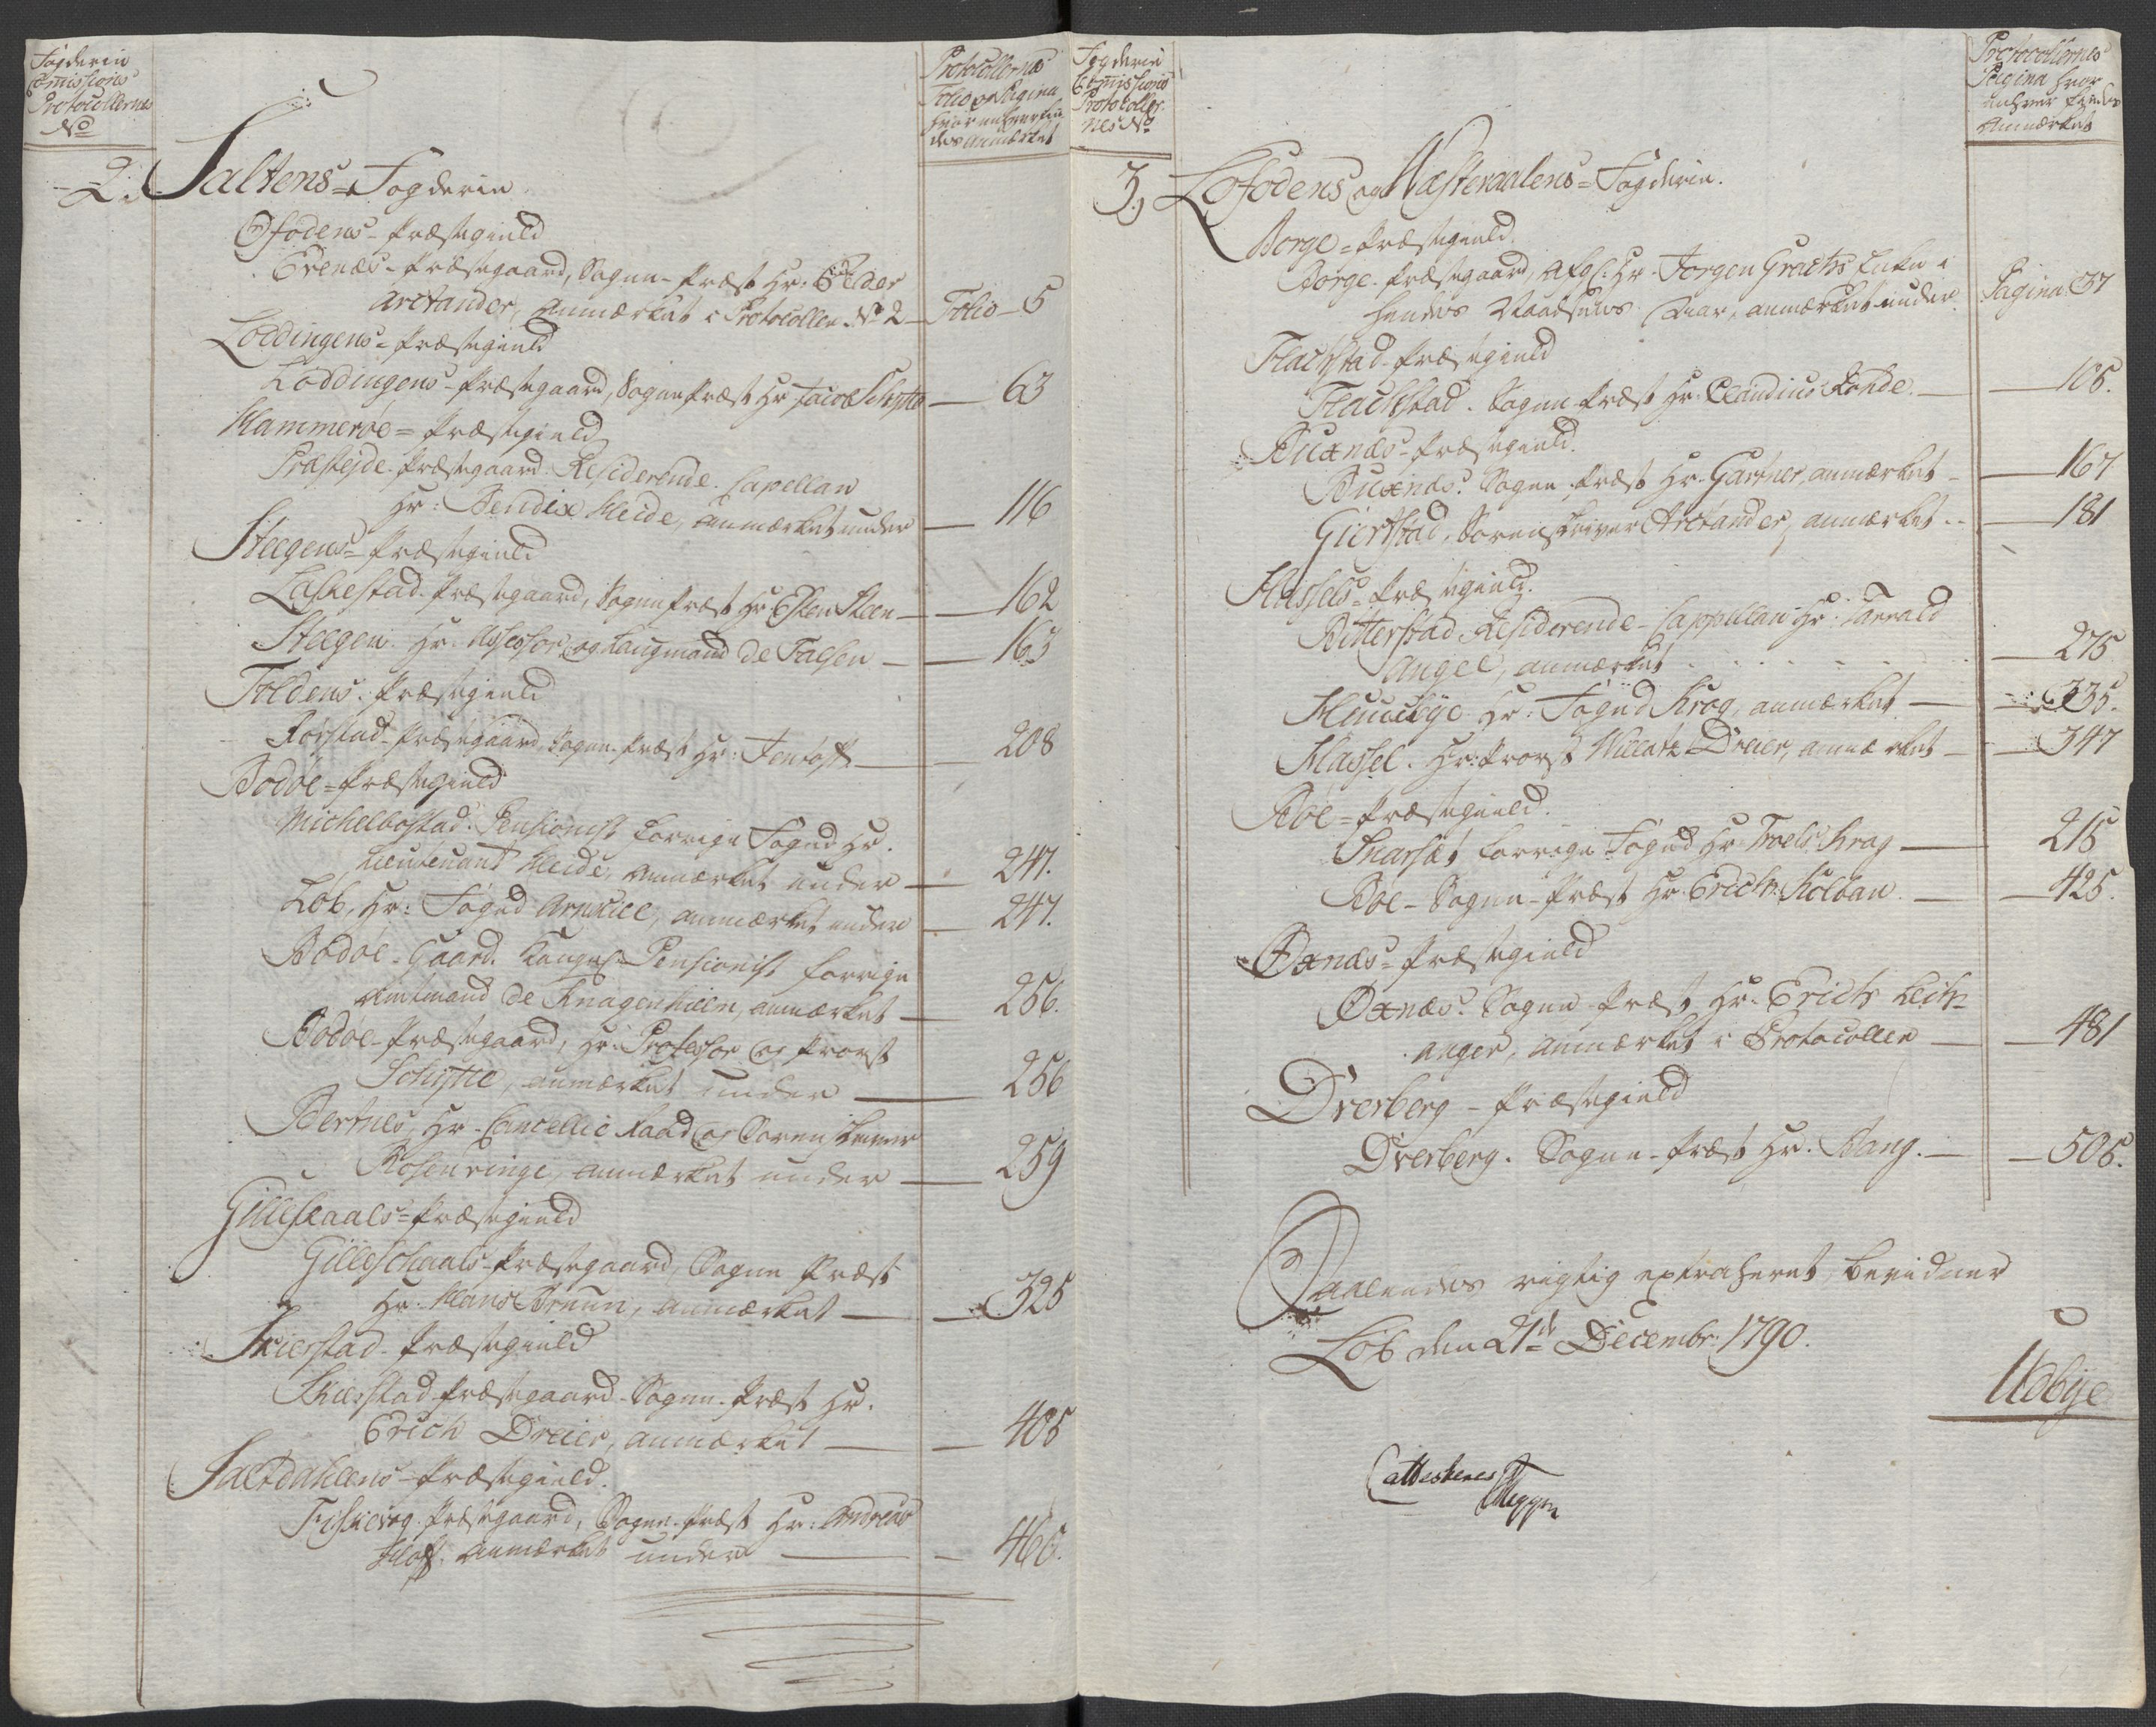 Fogderie
Commissions
Protocollernes
No
Protocollernes
Folio og Pagina
hvor enhver fin
des anmærket
2. Saltens = Fogderie
Ofodens - Præstegield
Evenæs - Præstegaard, Sogne - Præst Hr:
Arctander, anmærket i Protocollen No 2 - Folio - 5
Loddingens = Præstegield
Loddingens - Præstegaard, Sognepræst Hr Jacob Schytte - 63
Hammeröe = Præstegield
Præsteide - Præstegaard. Residerende Capellan
Hr: Bendix Heide, anmærket under - 116
Steegens = Præstegield
Laskestad - Præstegaard, Sognepræst Hr Esten Steen - 162
Steegen Hr. Assessor og Laugmand de Falsen - 163
Foldens - Præstegield
Rörstad - Præstegaard, Sogne - Præst Hr: Jentoft - 208
Bodöe = Præstegield
Michelbostad. Pensionist forrige Foged Hr.
Lieutenant Heide, anmærket under - 247.
Löb, Hr: Foged Arnkiel, anmærket under - 247.
Bodöe - Gaard. Kongel. Pensionist forrige
Amtmand de Knagenhielm, anmærket - 256.
Bodöe - Præstegaard, Hr: Professor og Provst
Schytte, anmærket under - 256
Bertnes, Hr. Cancellie Raad og Sorenskriver
Rosenvinge, anmærket under - 259
Gilleskaals = Præstegield
Gilleschaals - Præstegaard, Sogne Præst
Hr. Hans Bruun, anmærket - 325
Skierstad - Præstegield
Skierstad Præstegaard - Sogne - Præst Hr.
Erich Dreier, anmærket - 405
Saltdahlens - Præstegield.
Præstegaard, Sogne - Præst Hr: Andreas
anmærket under - 466.
Fogderie
Commissions
Protocoller
nes No
Protocollernes
Pagina hvor
enhver findes
Anmærket
3, Lofodens og Westeraalens = Fogderie.
Borge = Præstegield.
Borge - Præstegaard, Afg: Hr. Jörgen Enke i
hendes Naadsens Aar, anmærket under Pagina 37
Flackstad - Præstegield
Flackstad. Sogne Præst Hr. Claudius Rohde. - 105.
Buxnæs - Præstegield.
Buxnæs. Sogne Præst Hr. Gartner, anmærket - 167
Giertstad, Sorenskriver Arctander, anmærket - 181
Hassels - Præstegield.
Ritterstad Residerende - Cappellan Hr:
Angel, anmærket - 275
Hr: Foged Krog, anmærket - 335.
Hassel. Hr: Provst Dreier, anmærket - 347
Böe = Præstegield.
forrige Foged Hr Troels Krag - 215
Böe - Sogne - Præst Hr. Erich Kolban. - 425.
Öxnæs = Præstegield
Öxnæs. Sogne - Præst Hr. Erich Leich
anger, anmærket i Protocollen - 481
Dverberg - Præstegield
Dverberg. Sogne - Præst Hr. Bang. - 505.
Saaledes rigtig extraheret, bevidner
Löb den 21de Decembr: 1790.
Udbye